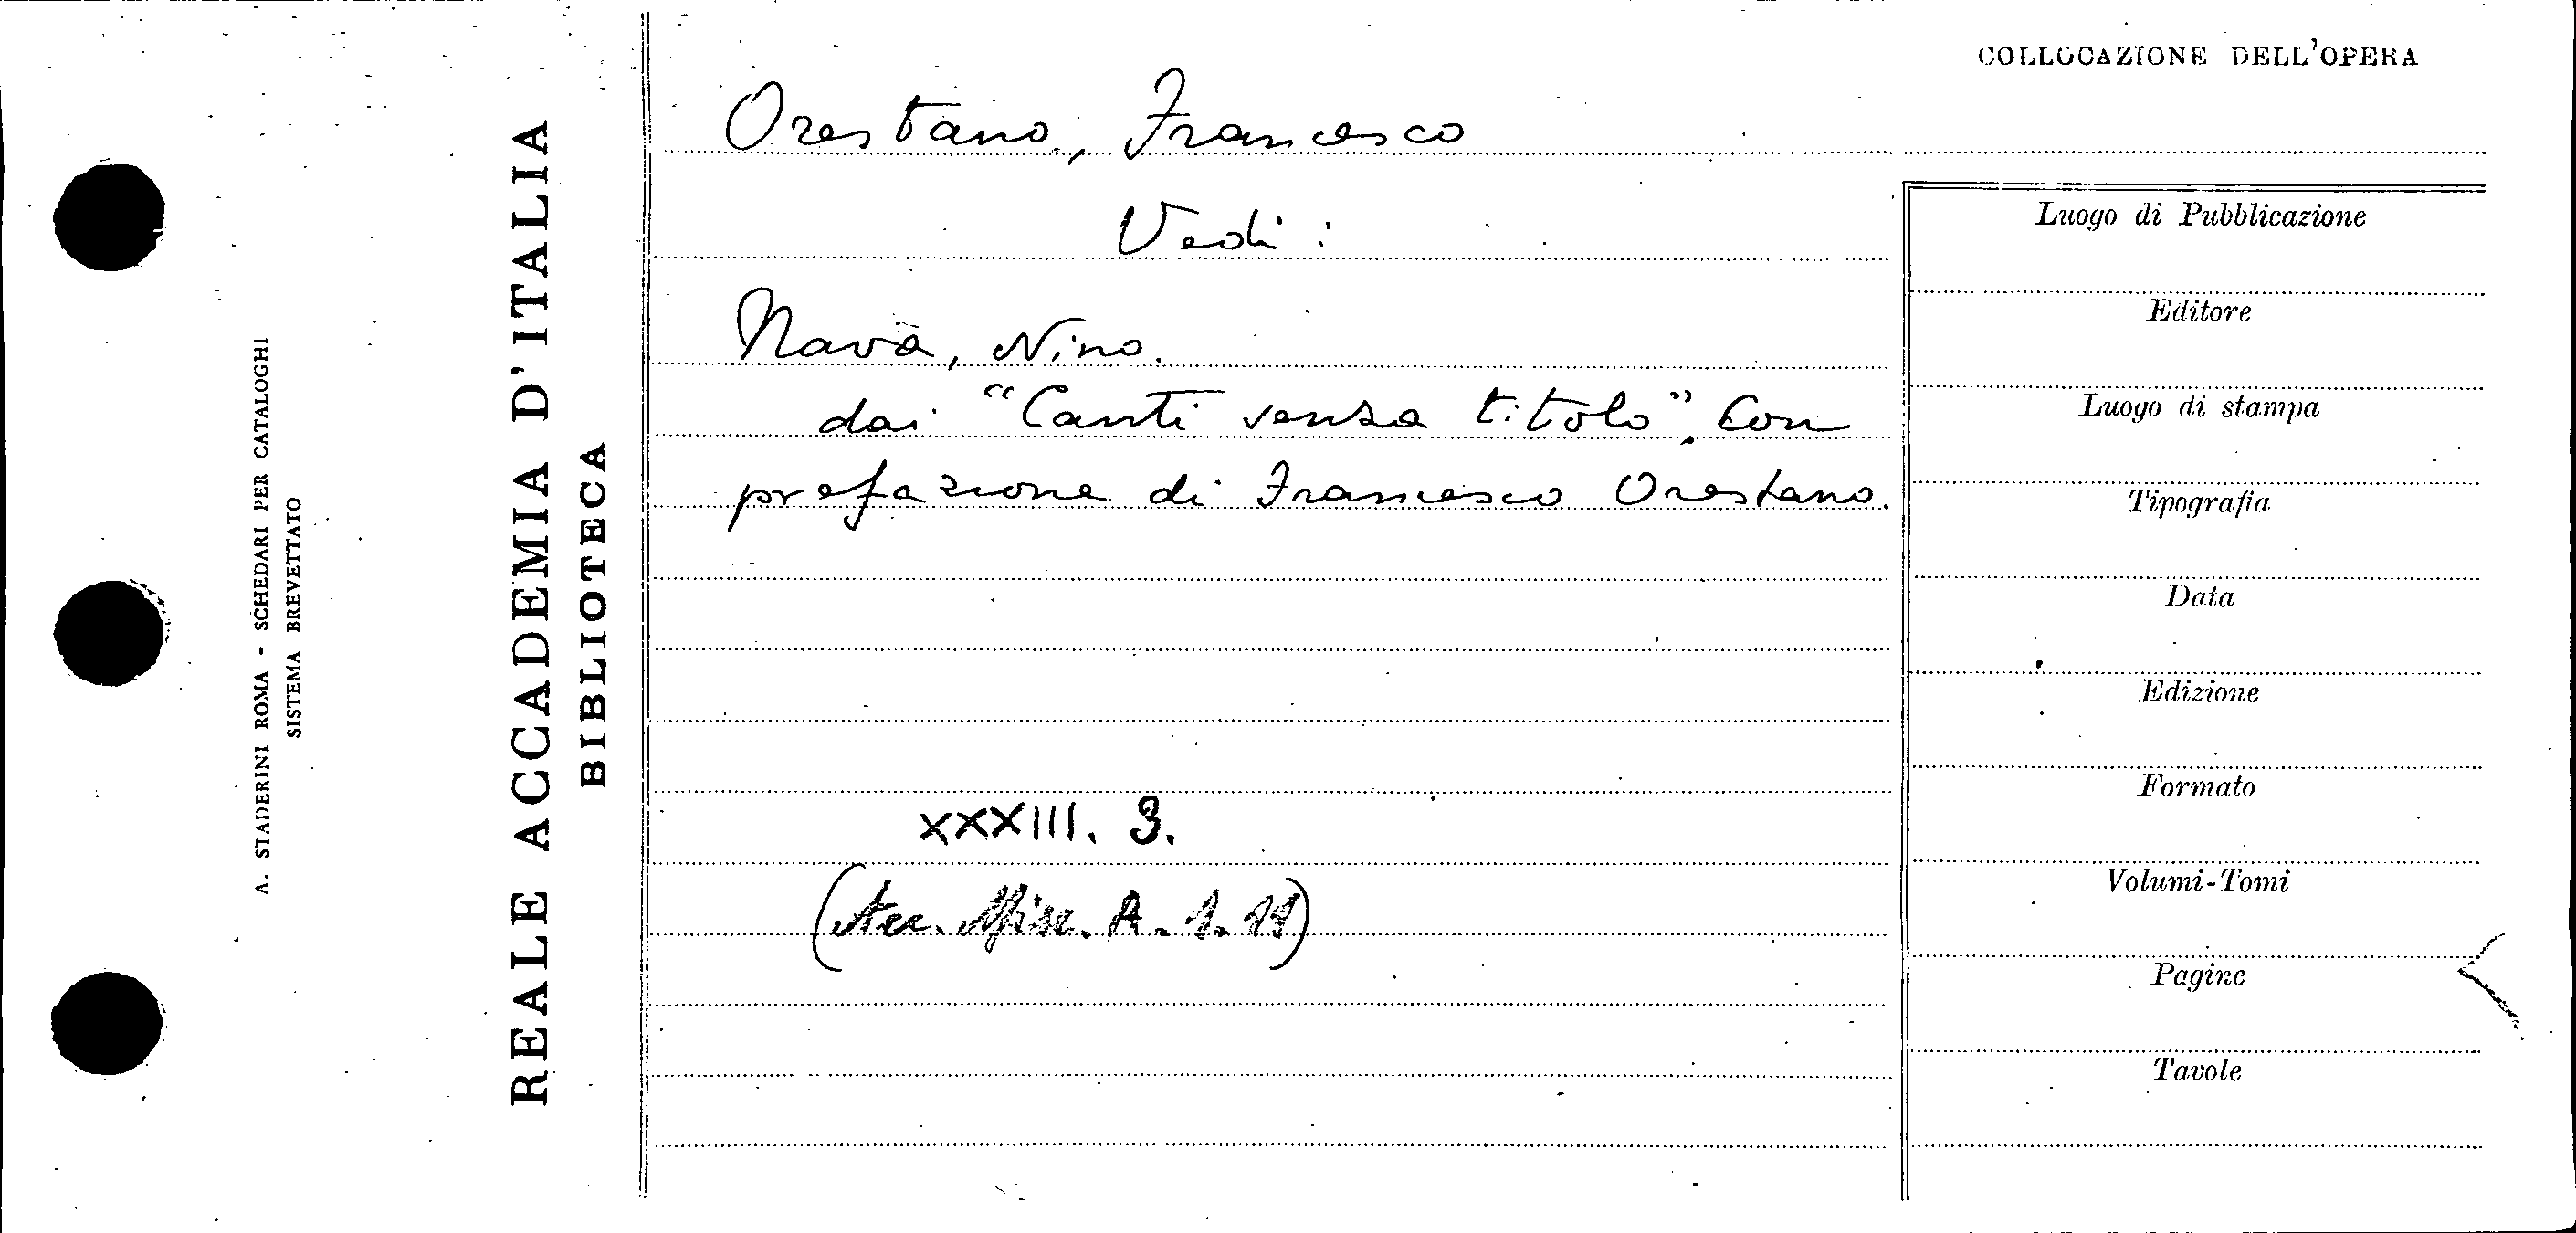 A. STADERINI ROMA - SCHEDARI PER CATALOGHI
SISTEMA BREVETTATO
REALE ACCADEMIA D'ITALIA
BIBLIOTECA
Orestano, Francesco
Vedi:
Nava, Nino.
dai "Canti senza titolo". Con
prefazione di Francesco Orestano.
XXXIII. 3.
(Acc. Misc. A. 1. 11)
COLLOCAZIONE DELL'OPERA
Luogo di Pubblicazione
Editore
Luogo di stampa
Tipografia
Data
Edizione
Formato
Volumi-Tomi
Pagine
Tavole